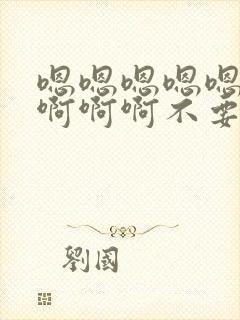 嗯嗯嗯嗯嗯
啊啊啊不要
劉國